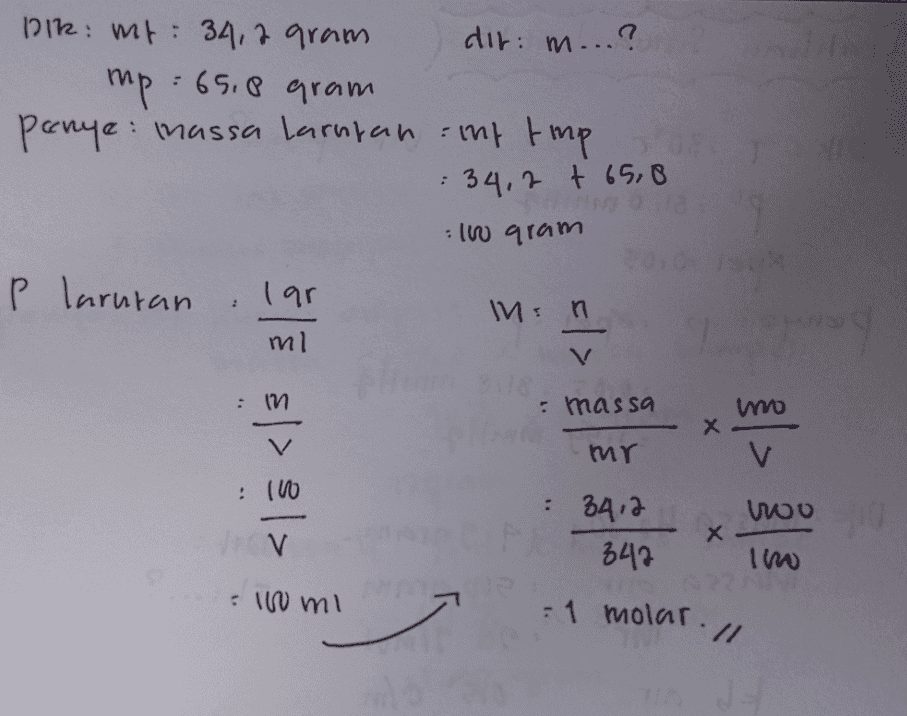 Dik: mt : 34,2 gram
dit: m...?
mp : 65,8 gram
penye: massa larutan = mt + mp
: 34,2 + 65,8
: 100 gram
P larutan : 1 gr
ml
: m
v
: 100
v
= 100 ml
M = n
v
= massa x 1000
mr v
= 34,2 x 1000
342 100
= 1 molar. //